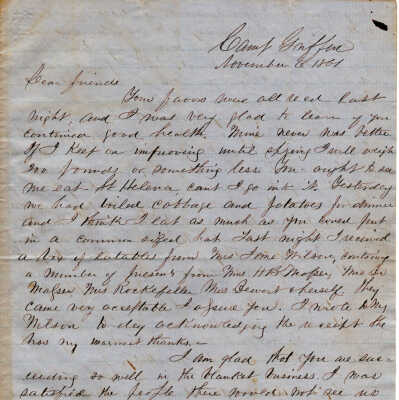 Camp Griffin
November 6 1861
Dear friends
Your favors were all recd last
night, and I was very glad to learn of your
continued good health. Mine never was better
If I keep on improving until spring I will weigh
200 pounds or something less You ought to see
me eat St Helena, cant I go into it Yesterday
we had boiled cabbage and potatoes for dinner
and I think I eat as much as you could put
in a common sized hat Last night I received
a box of eatables from Mrs Wilson, containing
a number of presents from Mrs H B Mrs
Mrs Rockefeller Mrs Dewart & herself, they
came very acceptable I assure you. I wrote to Mrs
Wilson to day acknowledging the receipt &
my warmest thanks—
I am glad that you are suc
ceeding so well in the blanket business. I was
satisfied the people there would not see us